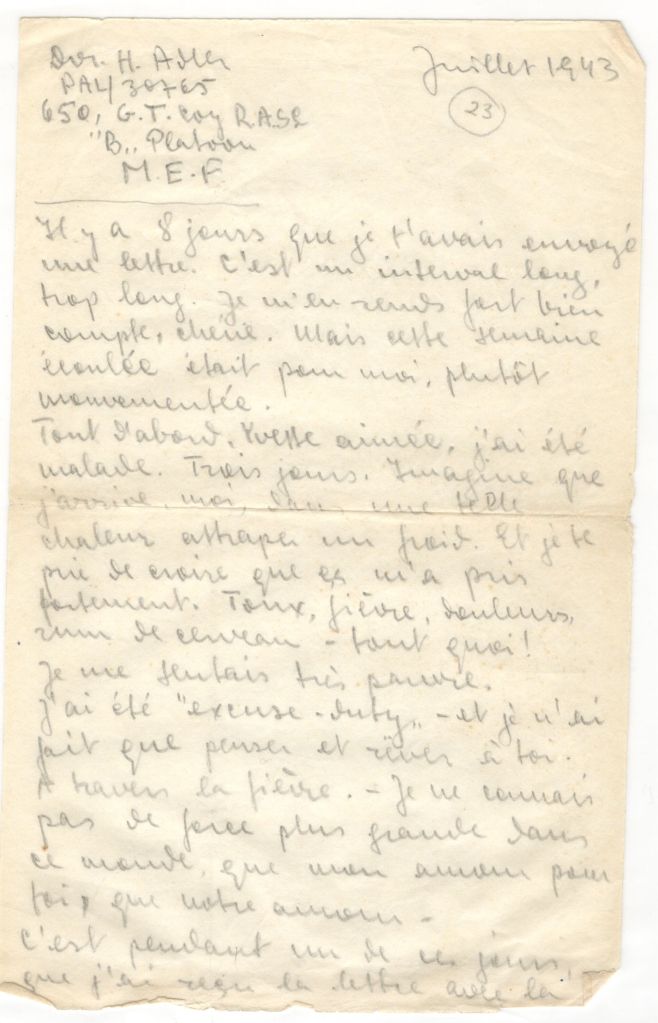 Dvr. H. Adler
Juillet 1943
PAL/30765
23
650, G.T. Coy R.A.S.C
"B„ Platoon
M.E.F
Il y a 8 jours que je t'avais envoyé
une lettre. C'est un interval long,
trop long. Je m'en rends fort bien
compte, chérie. Mais cette semaine
écoulée était pour moi, plutôt
mouvementée.
Tout d'abord, Yvette aimée, j'ai été
malade. Trois jours. Imagine que
j'arrive, moi, dans une telle
chaleur attraper un froid. Et je te
prie de croire que ça m'a pris
fortement. Toux, fièvre, douleurs,
rum de cerveau - tout quoi!
Je me sentais très pauvre.
J'ai été "excuse-duty„ - et je n'ai
fait que penser et rêver à toi.
A travers la fièvre. - Je ne connais
pas de force plus grande dans
ce monde, que mon amour pour
toi, que notre amour -
C'est pendant un de ces jours,
que j'ai reçu la lettre avec la